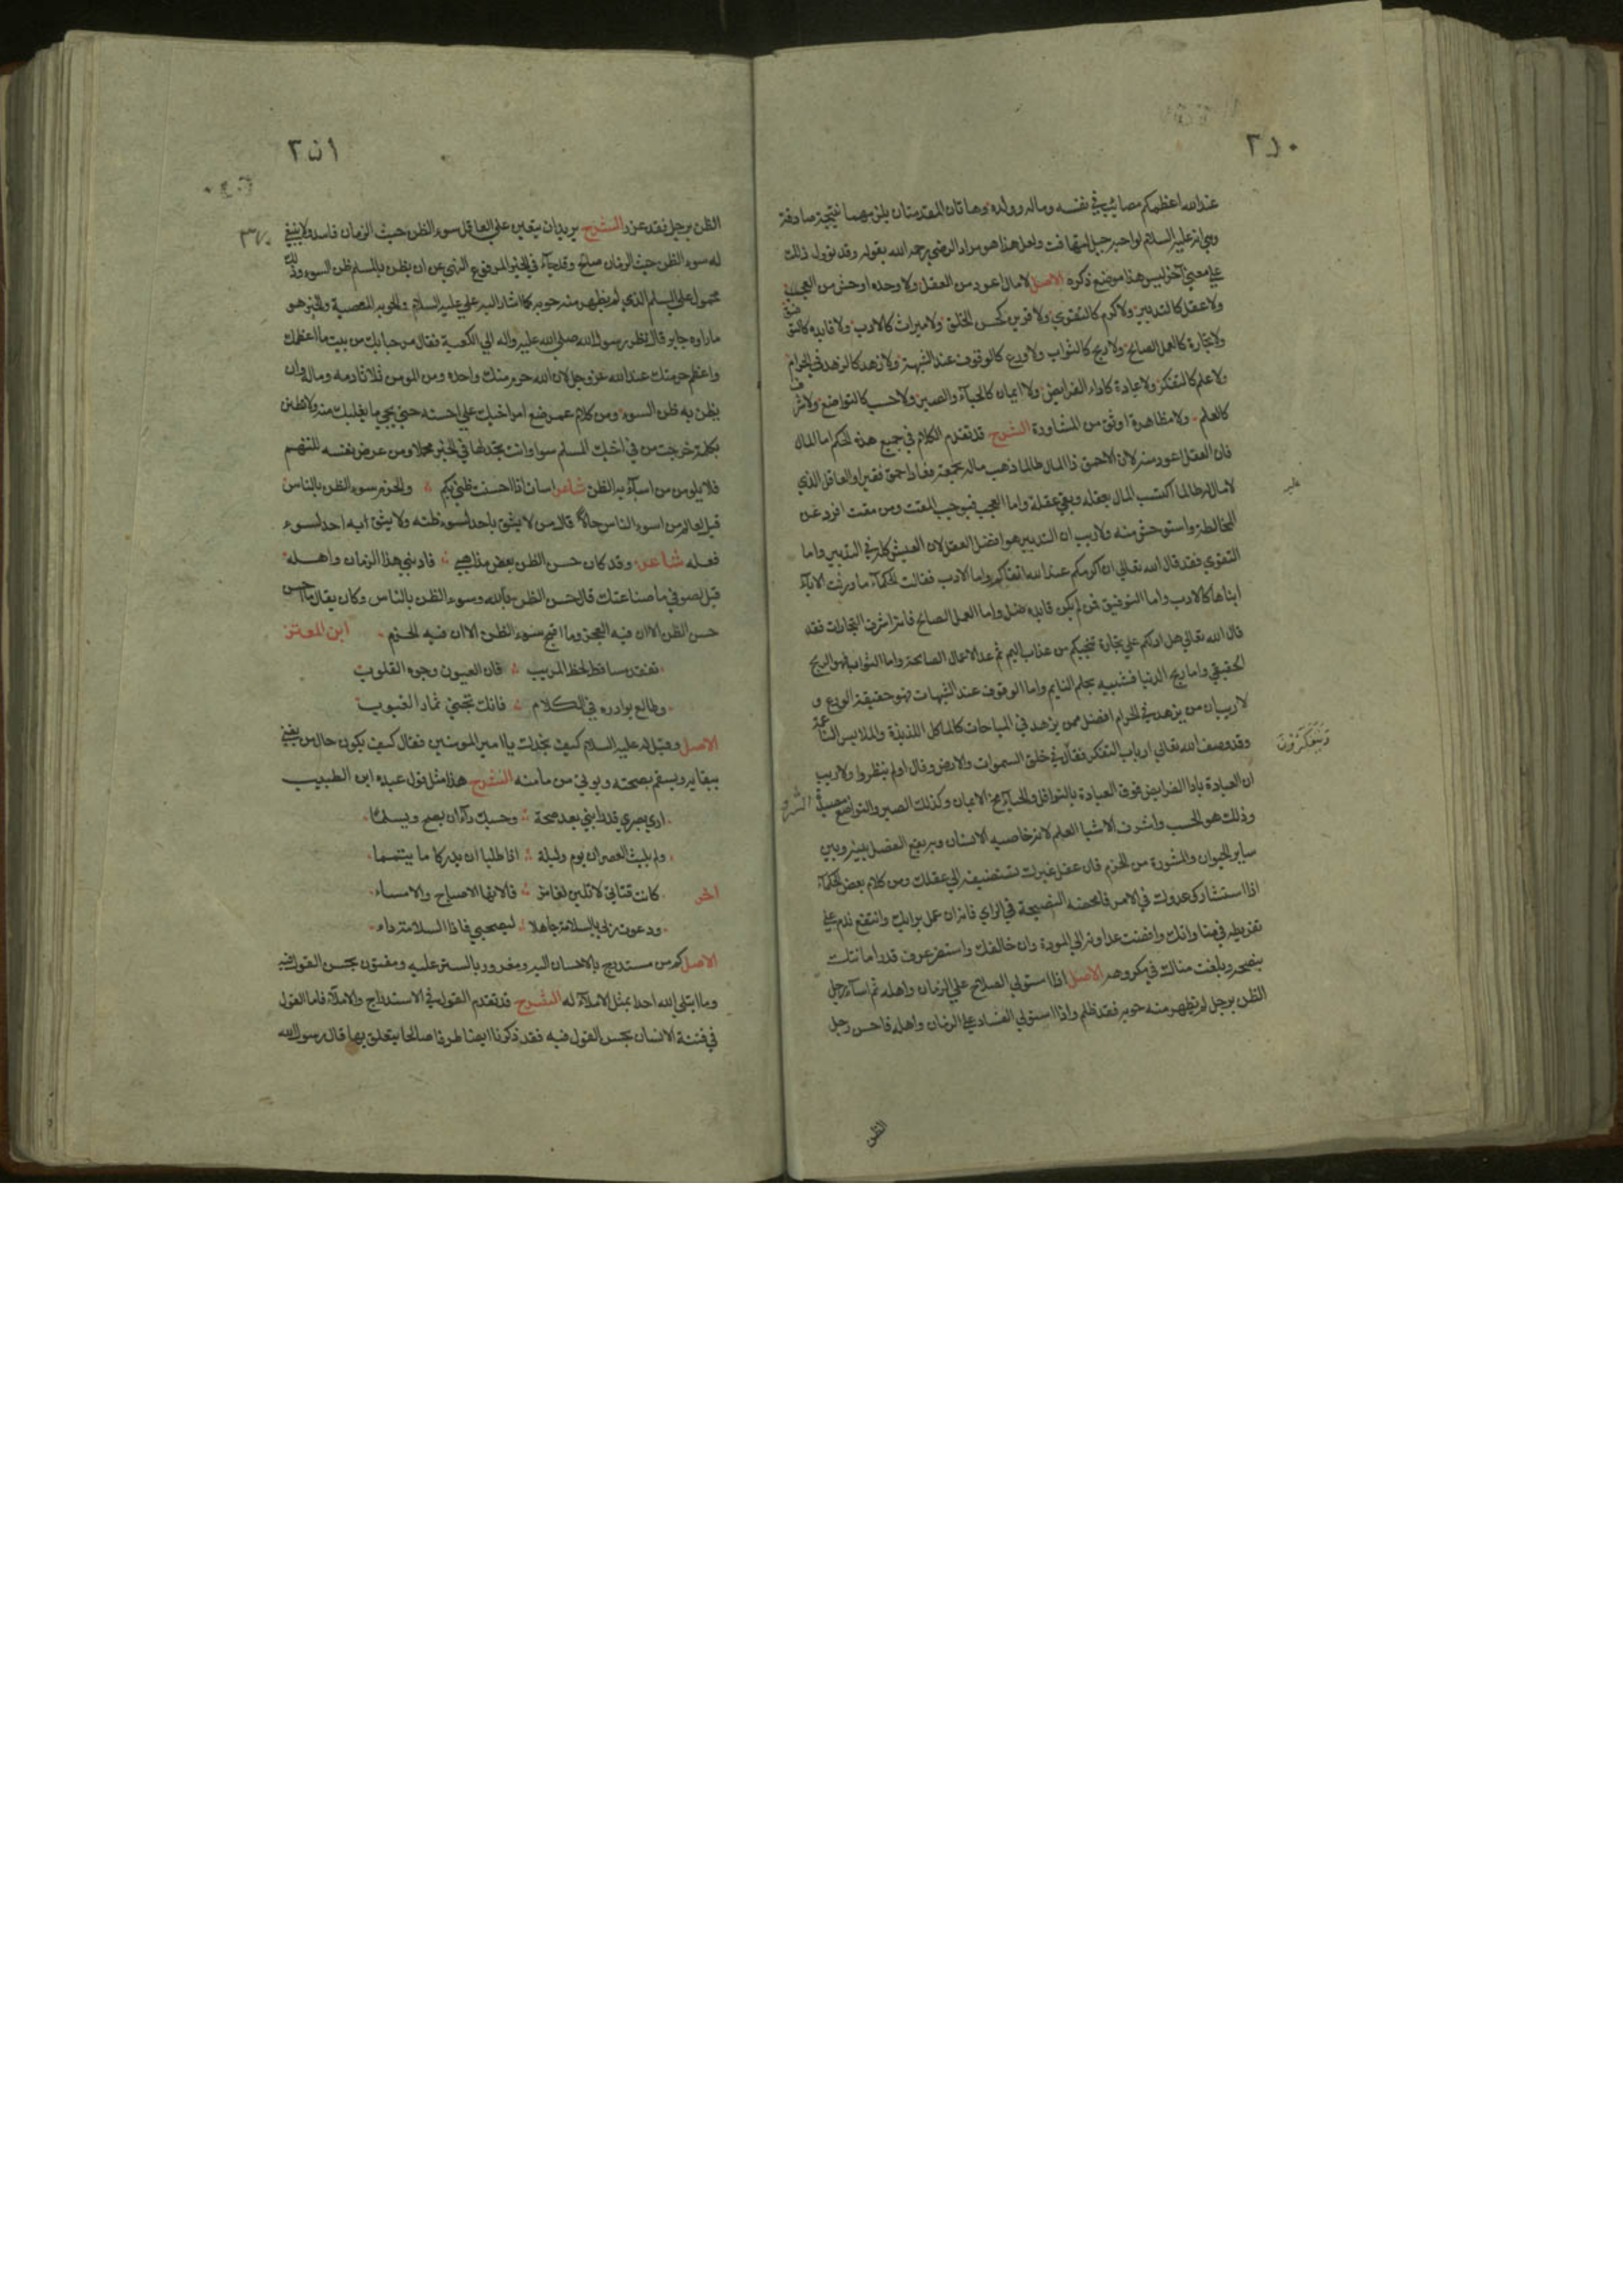 عند الله اعظمكم مصائب في نفسه وماله وولده وهاتان المقدمتان يلزمهما نتيجة صادقة
وهي انه عليه السلام لو احبه جبل لتهافت ولعل هذا هو مراد الرضي رحمه الله بقوله وقد يؤول ذلك
علي معني آخر ليس هذا موضع ذكره الاصل لا مال اعود من العقل ولا وحدة اوحش من العجب
ولا عقل كالتدبير ولا كرم كالتقوي ولا قرين كحسن الخلق ولا ميراث كالادب ولا قايد كالتوفيق
ولا تجارة كالعمل الصالح ولا ربح كالثواب ولا ورع كالوقوف عند الشبهة ولا زهد كالزهد في الحرام
ولا علم كالتفكر ولا عبادة كاداء الفرايض ولا ايمان كالحيآء والصبر ولا حسب كالتواضع ولا شرف
كالعلم ولا مظاهرة اوثق من المشاورة الشرح قد تقدم الكلام في جميع هذه الحكم اما المال
فان العقل اعود منه لان الاحمق ذا المال طالما ذهب ماله بحمقه فعاد احمق فقيرا والعاقل الذي
لا مال له طالما اكتسب المال بعقله وبقي عقله عليه واما العجب فيوجب المقت ومن مقت افرد عن
المخالطة واستوحش منه ولا ريب ان التدبير هو افضل العقل لان العيش كله في التدبير واما
التقوي فقد قال الله تعالي ان اكرمكم عند الله اتقاكم واما الادب فقالت الحكمآء ما ورثت الابآء
ابناها كالادب واما التوفيق فمن لم يكن قايده ضل واما العمل الصالح فانه اشرف التجارات فقد
قال الله تعالي هل ادلكم علي تجارة تنجيكم من عذاب اليم ثم عد الاعمال الصالحة واما الثواب فهو الربح
الحقيقي واما ربح الدنيا فشبيه بحلم النايم واما الوقوف عند الشبهات فهو حقيقة الورع و
لا ريب ان من يزهد في الحرام افضل ممن يزهد في المباحات كالماكل اللذيذة والملابس الناعمة
وقد وصف الله تعالي ارباب التفكر فقال ويتفكرون في خلق السموات والارض وقال اولم ينظروا ولا ريب
ان العبادة بادا الفرايض فوق العبادة بالنوافل والحيآء مخ الايمان وكذلك الصبر والتواضع مصيدة الشرف
وذلك هو الحسب واشرف الاشيا العلم لانه خاصيه الانسان وبه يقع الفصل بينه وبين
ساير الحيوان والمشورة من الحزم فان عقل غيرك تستضيفه الي عقلك ومن كلام بعض الحكمآء
اذا استشارك عدوك في الامر فامحضه النصيحة في الراي فانه ان عمل برايك وانتفع ندم علي
تفريطه في مناوانك وافضت عداوته الي المودة وان خالفك واستضر عرف قدر امانتك
بنصحه وبلغت مناك في مكروهه الاصل اذا استولي الصلاح علي الزمان واهله ثم اسآء رجل
الظن برجل لم يظهر منه حوبه فقد ظلم واذا استولي الفساد علي الزمان واهله فاحسن رجل
الظن
الظن برجل فقد غرر الشرح يريد ان يتعين علي العاقل سوء الظن حيث الزمان فاسد ولا ينبغي
له سوء الظن حيث الزمان صالح وقد جآء في الخبر المرفوع النهي عن ان يظن بالمسلم ظن السوء وذلك
محمول علي المسلم الذي لم يظهر منه حوبه كما اشار اليه علي عليه السلام والحوبه المعصية والخبر هو
ما راوه جابر قال نظر رسول الله صلي الله عليه واله الي الكعبة فقال مرحبا بك من بيت ما اعظمك
واعظم حرمتك عند الله عز وجل لان الله حرم منك واحده ومن المومن ثلاثا دمه وماله وان
يظن به ظن السوء ومن كلام عمر ضع امر اخيك علي احسنه حتي يجي ما يغلبك منه ولا تظنن
بكلمة خرجت من في اخيك المسلم سوا وانت تجد لها في الخير محملا ومن عرض نفسه للتهم
فلا يلومن من اسآء به الظن شاعر اسات اذ احسنت ظني بكم والحزم سوء الظن بالناس
قيل لعالم من اسوء الناس حالا قال من لا يثق باحد لسوء ظنه ولا يثق به احد لسوء
فعله شاعر وقد كان حسن الظن بعض مذاهبي فادبني هذا الزمان واهله
قيل لصوفي ما صناعتك قال حسن الظن بالله وسوء الظن بالناس وكان يقال ما احسن
حسن الظن الا ان فيه العجز وما اقبح سوء الظن الا ان فيه الحزم ابن المعتز
تفقد مساقط لحظ المريب فان العيون وجوه القلوب
وطالع بوادره في الكلام فانك تجني ثمار الغيوب
الاصل وقيل له عليه السلام كيف تجدك يا امير المومنين فقال كيف يكون حال من يفني
ببقايه ويسقم بصحته ويوتي من مامنه الشرح هذا مثل قول عبده ابن الطبيب
اري بصري قد رابني بعد صحة وحسبك دآء ان يصح ويسلما
ولم يلبث العصران يوم وليلة اذا طلبا ان يدركا ما تيمما
اخر كانت قناتي لا تلين لغامز فالانها الاصباح والامساء
ودعوت ربي بالسلامة جاهدا ليصحني فاذا السلامة داء
الاصل كم من مستدرج بالاحسان اليه ومغرور بالستر عليه ومفتون بحسن القول فيه
وما ابتلي الله احدا بمثل الاملآء له الشرح قد تقدم القول في الاستدراج والاملآء فاما القول
في فتنة الانسان بحسن القول فيه فقد ذكرنا ايضا طرفا صالحا يتعلق بها قال رسول الله